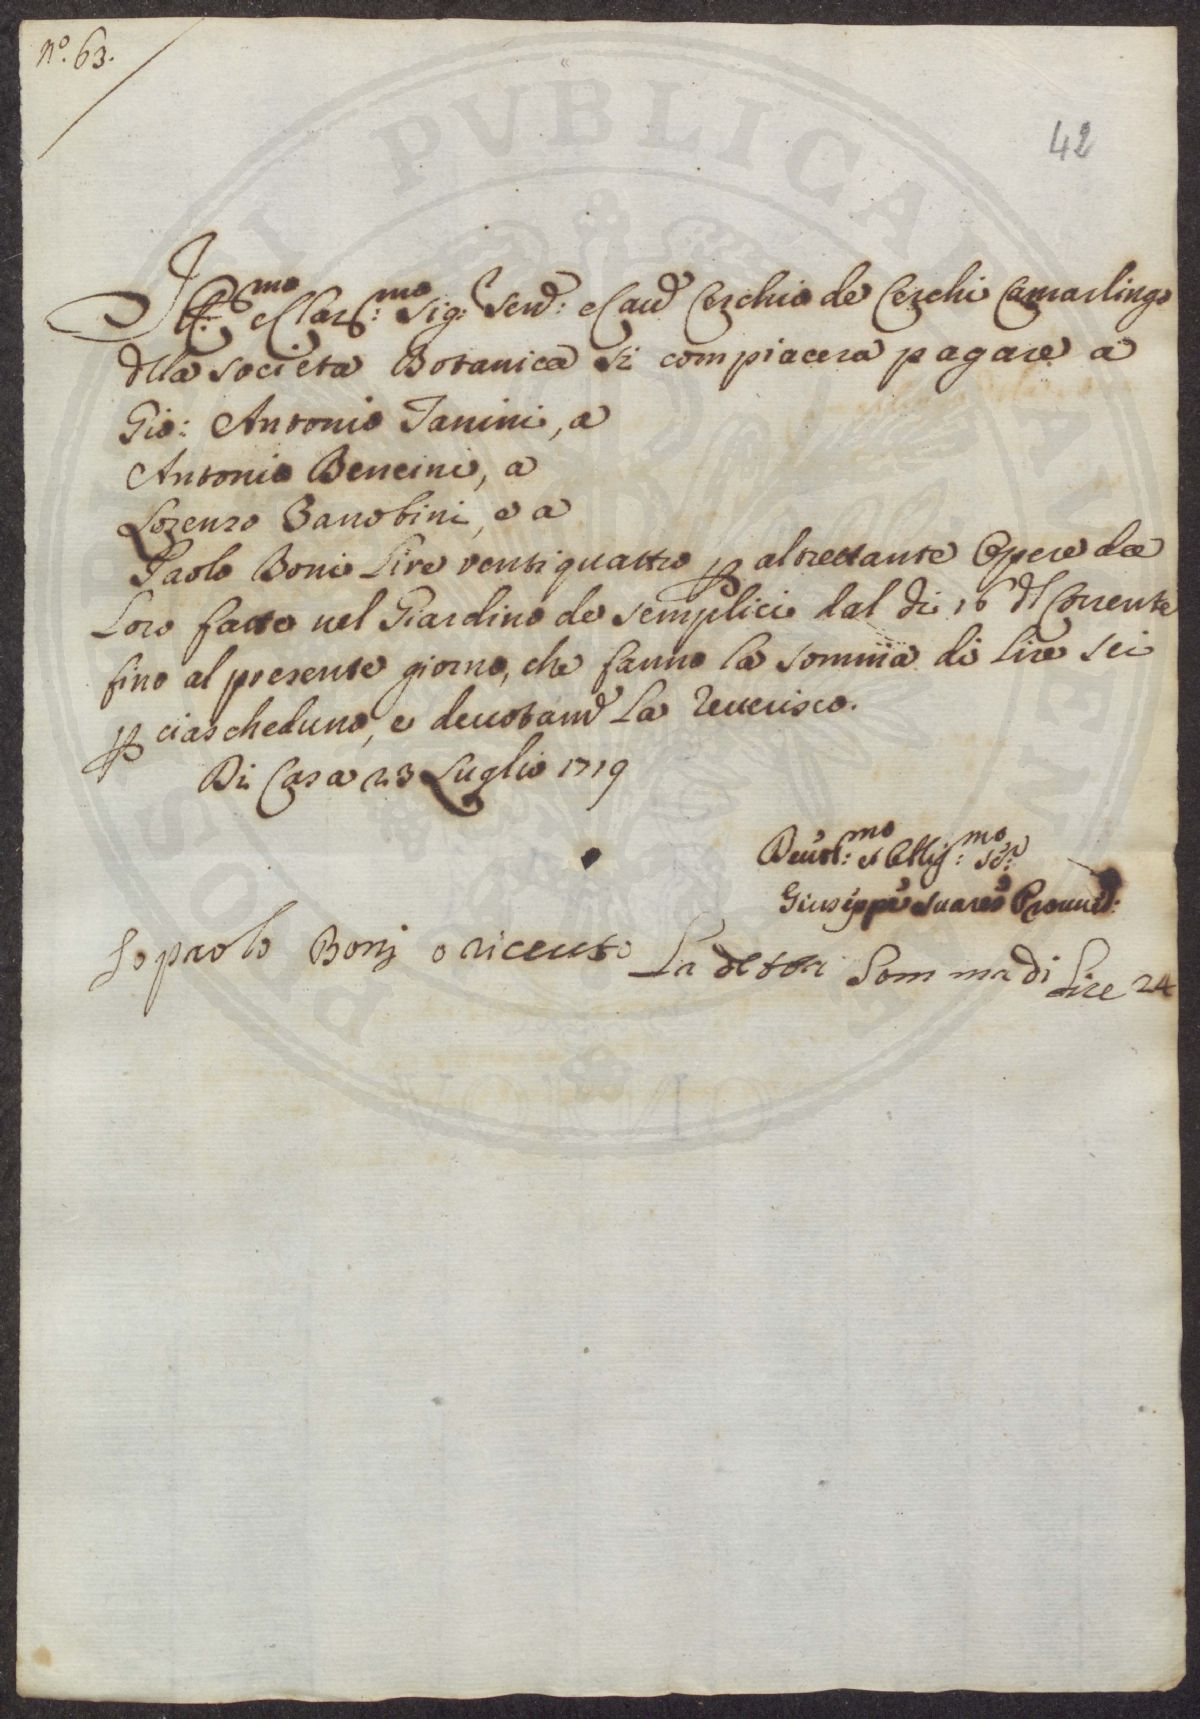 N.º 63.
42
Ill.mo e Clar.mo Sig.r Send.: e Caud Cerchio de Cerchi Camarlingo
dlla Societa Botanica si compiacera pagare a
Gio: Antonio Janini, a
Antonio Bencini, a
Lorenzo Zanobini, e a
Paolo Boni Lire ventiquattro p altrettante Opere da
Loro fatte nel Giardino de semplici dal di 16 dl Corrente
fino al presente giorno, che fanno la somma di lire sei
p ciascheduno, e deuotamd La reuerisco.
Di Casa 23 Luglio 1719
Deuot:mo et Obblig:mo Se:r
Giuseppe Suares Proued:
Io paolo Bonj o riceuto La detta Somma di Lire 24
PVBLICAE